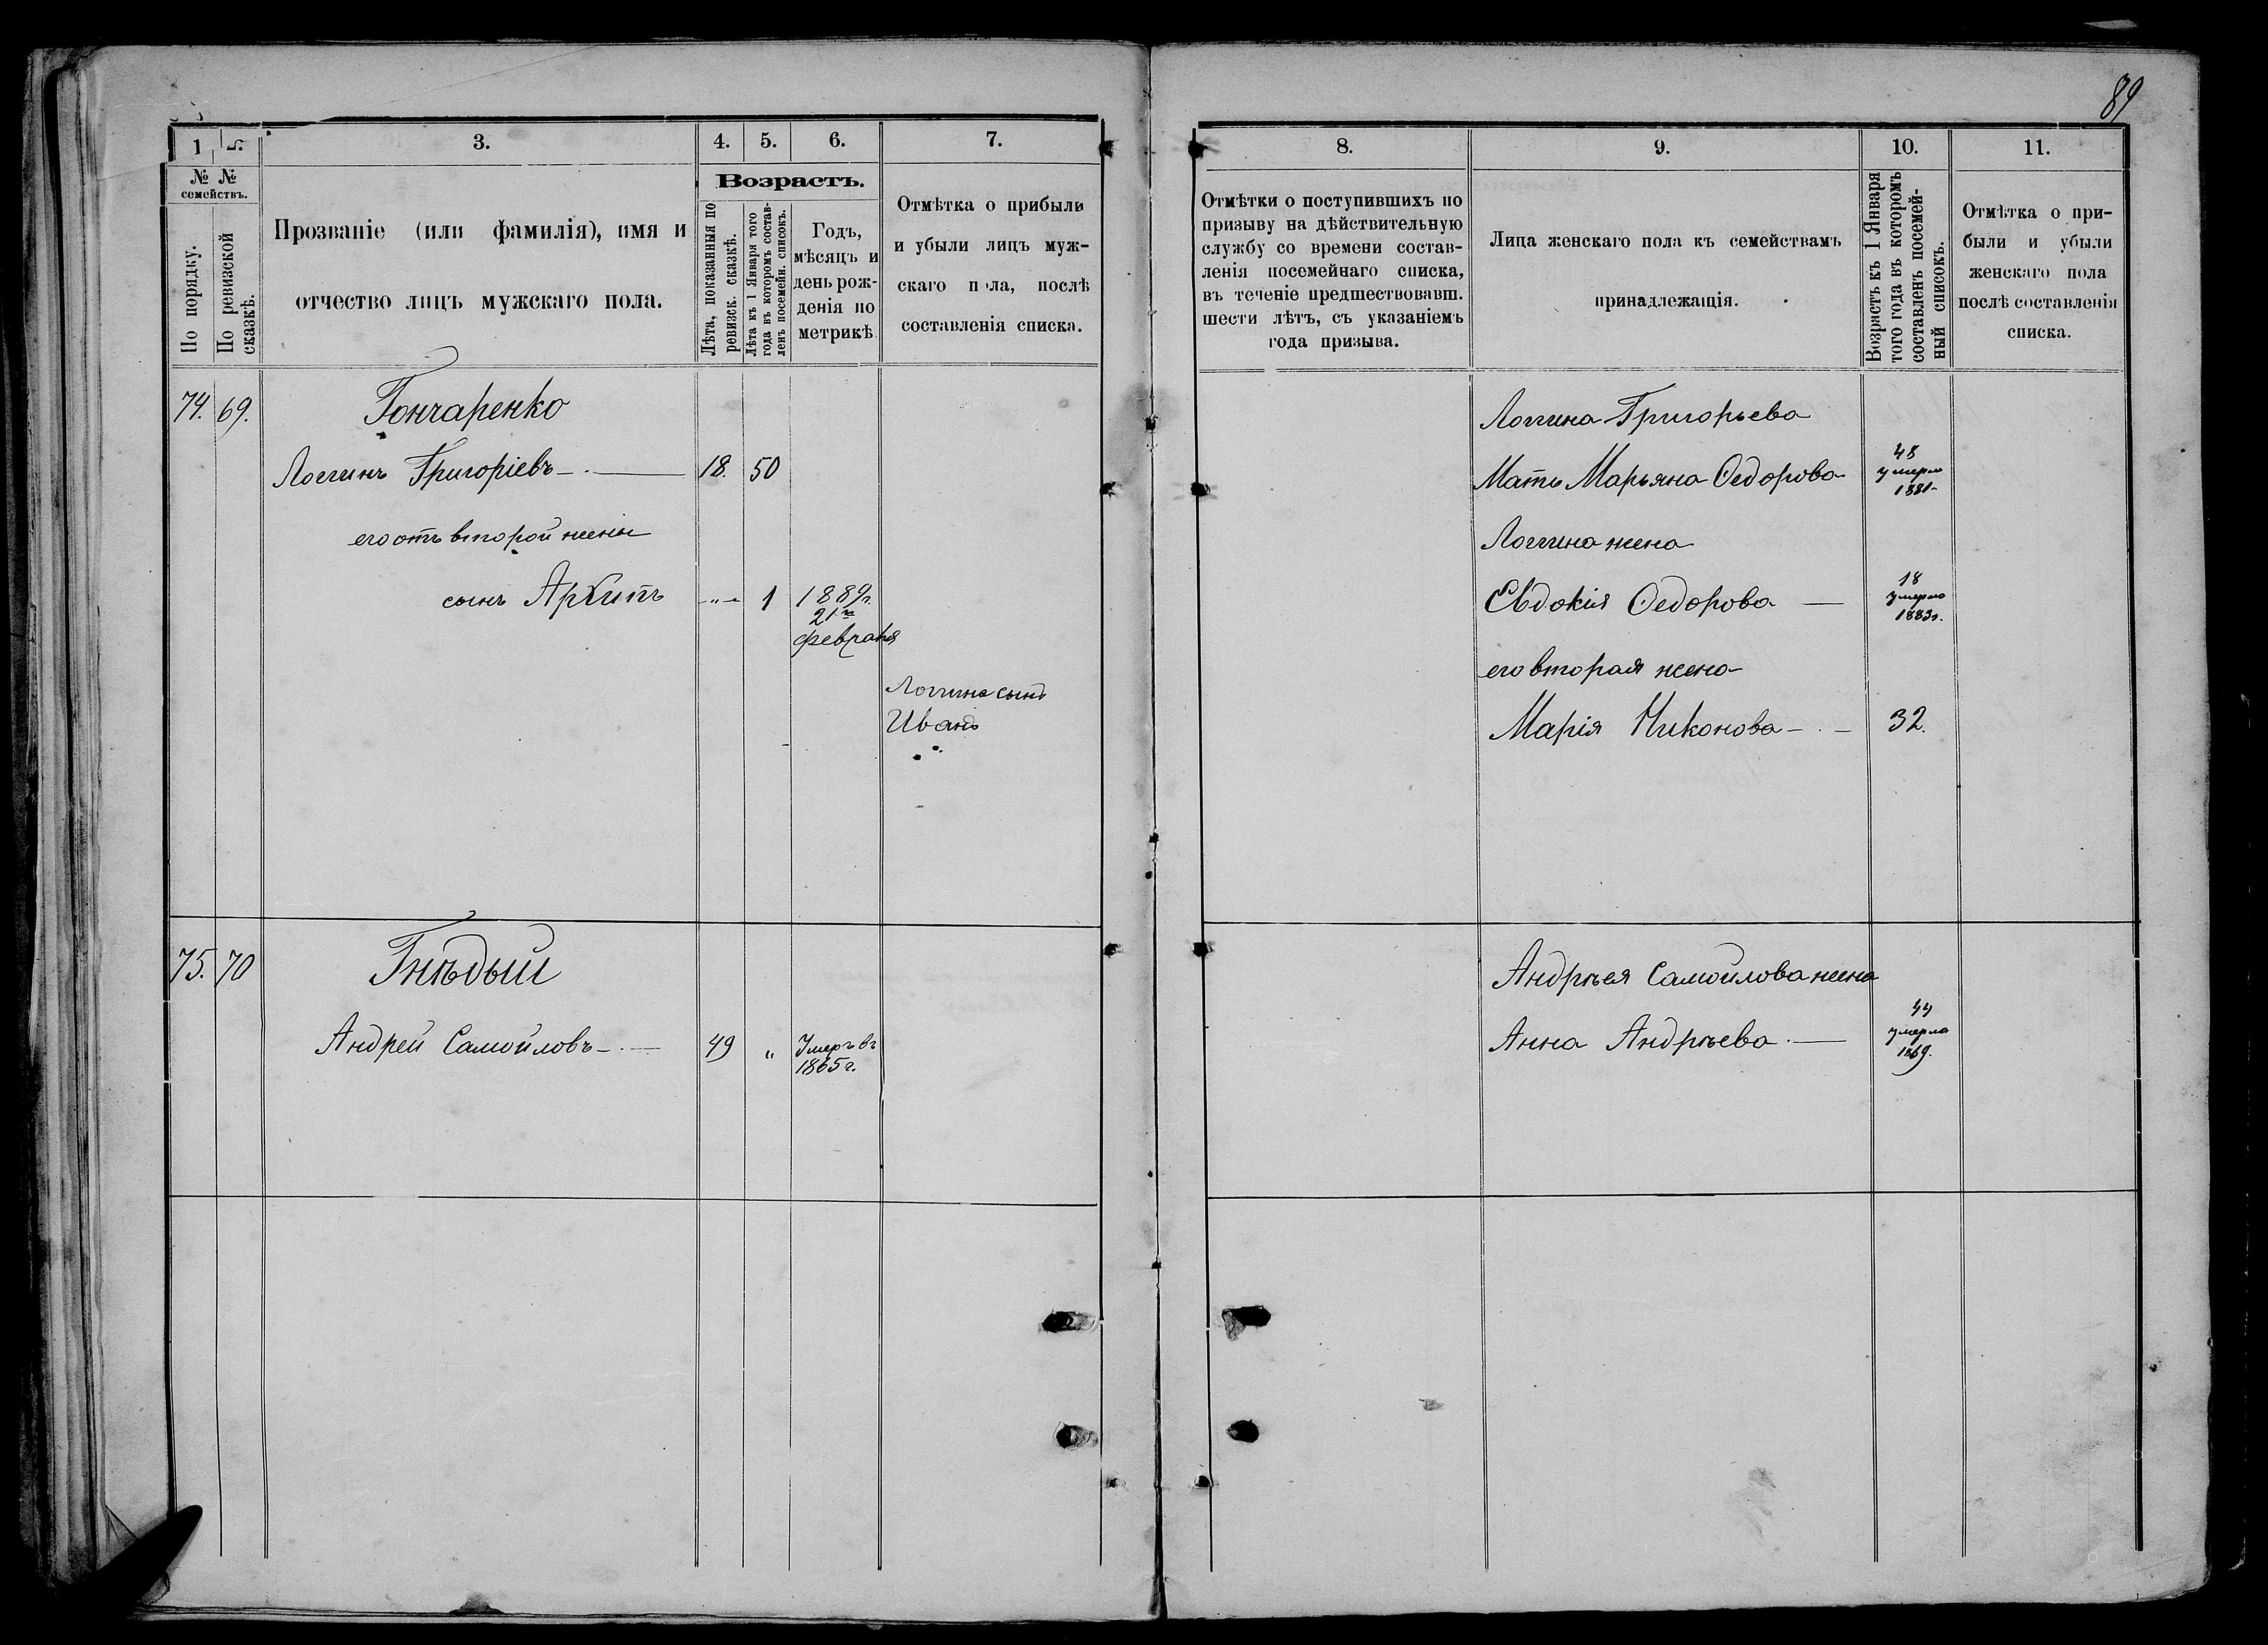 89
1 2. 3. 4. 5. 6. 7.
№ №
семействъ.
По порядку.
По ревизской сказкѣ.
Прозваніе (или фамилія), имя и
отчество лицъ мужскаго пола.
Возрастъ.
Лѣта, показанныя по
ревизск. сказкѣ.
Лѣта къ 1 Января того
года въ которомъ состав-
ленъ посемейн. списокъ.
Годъ,
мѣсяцъ и
день рож-
денія по
метрикѣ
Отмѣтка о прибыли
и убыли лицъ муж-
скаго пола, послѣ
составленія списка.
74. 69. Гончаренко
Логгинъ Григоріевъ 18. 50
его отъ второй жены
сынъ Архипъ " 1 1889г.
21го
февраля
Логгина сынъ
Иванъ
75. 70 Гнѣдый
Андрей Самойловъ 49 " Умеръ въ
1865г.
8. 9. 10. 11.
Отмѣтки о поступившихъ по
призыву на дѣйствительную
службу со времени состав-
ленія посемейнаго списка,
въ теченіе предшествовавш.
шести лѣтъ, съ указаніемъ
года призыва.
Лица женскаго пола къ семействамъ
принадлежащія.
Возрастъ къ 1 Января
того года въ которомъ
составленъ посемей-
ный списокъ.
Отмѣтка о при-
были и убыли
женскаго пола
послѣ составленія
списка.
Логгина Григорьева
Мать Марьяна Ѳедорова 48
умерла
1881
Логгина жена
Евдокія Ѳедорова 18
умерла
1883г.
его вторая жена
Марія Никонова 32.
Андрѣя Самойлова жена
Анна Андрѣева 44
умерла
1869.